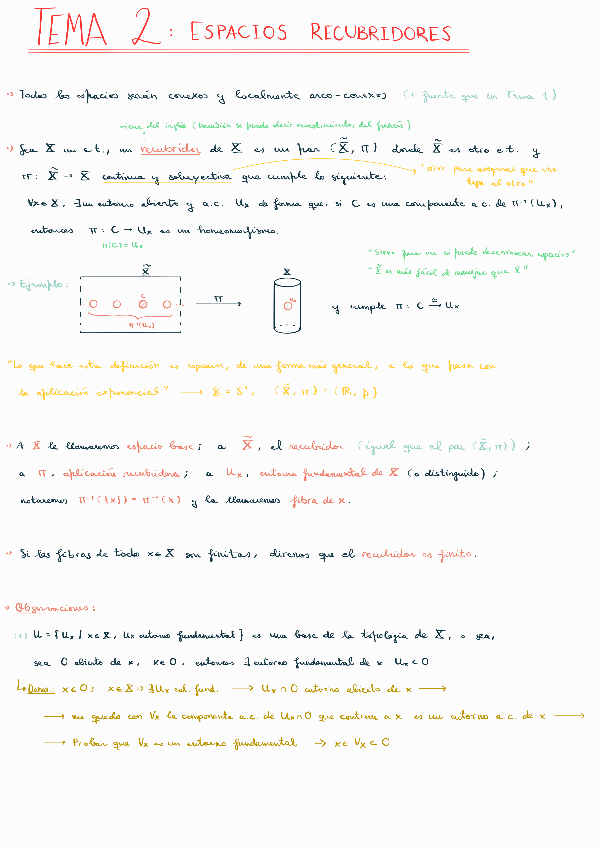 TEMA 2: ESPACIOS RECUBRIDORES
→ Todos los espacios serán conexos y localmente arco-conexos (+ fuerte que en Tema 1)
viene del inglés (también se puede decir revestimiento, del francés)
→ Sea X un e.t., un recubridor de X es un par (X̃, π) donde X̃ es otro e.t. y
π: X̃ → X continua y sobreyectiva que cumple lo siguiente:
"sirve para asegurar que uno
tapa al otro"
∀x∈X, ∃ un entorno abierto y a.c. Uₓ de forma que si C es una componente a.c. de π⁻¹(Uₓ),
entonces π: C → Uₓ es un homeomorfismo.
π(C) = Uₓ
"Sirve para ver si puede desenroscar espacios"
"X̃ es más fácil de manejar que X"
→ Ejemplo:
X̃
C
π⁻¹(Uₓ)
π
X
Uₓ
y cumple π: C ≅→ Uₓ
"Lo que hace esta definición es expresar, de una forma más general, a lo que pasa con
la aplicación exponencial" → X = S¹, (X̃, π) = (ℝ, p)
→ A X le llamaremos espacio base; a X̃, el recubridor (igual que al par (X̃, π));
a π, aplicación recubridora; a Uₓ, entorno fundamental de X (o distinguido);
notaremos π⁻¹({x}) = π⁻¹(x) y la llamaremos fibra de x.
→ Si las fibras de todo x∈X son finitas, diremos que el recubridor es finito.
→ Observaciones:
U = {Uₓ / x∈X, Uₓ entorno fundamental} es una base de la topología de X, o sea,
sea O abierto de x, x∈O, entonces ∃ entorno fundamental de x Uₓ⊂O
↳ Demos.: x∈O; x∈X → ∃Uₓ ent. fund. → Uₓ∩O entorno abierto de x →
→ me quedo con Vₓ la componente a.c. de Uₓ∩O que contiene a x es un entorno a.c. de x →
→ Probar que Vₓ es un entorno fundamental → x∈Vₓ⊂O